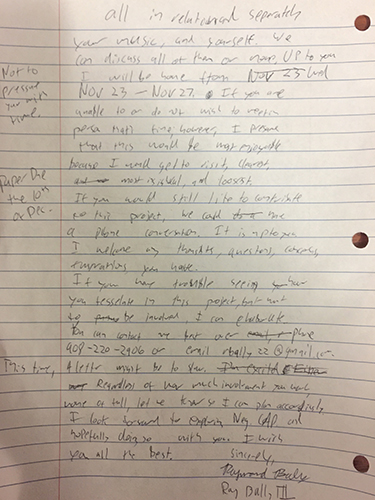 all in relation and separately
your music, and yourself. We
can discuss all of them or none, UP to you
Not to
pressure
you with
time.
I will be home from Nov 23 Wed
Nov 23 – Nov 27. If you are
unable to or do not wish to
person that's fine, however, I presume
that this would be most enjoyable
because I would get to visit, clearest,
Paper Due
the 10th
of Dec.
most and loosest.
If you would still like to contribute
to this project, we could do a
a phone conversation. It is up to you
I welcome any thoughts, questions, concerns,
you have.
If you have trouble seeing
you in this project, but want
to be involved, I can elaborate
You can contact me best over phone
908-220-2906 or email @gmail.com.
This time,
A letter must be to slow.
Regardless of how much involvement you want
none or all, let me know so I can plan accordingly
I look forward to exploring and
hopefully doing so with you. I wish
you all the best. Sincerely,
Raymond
Ray III